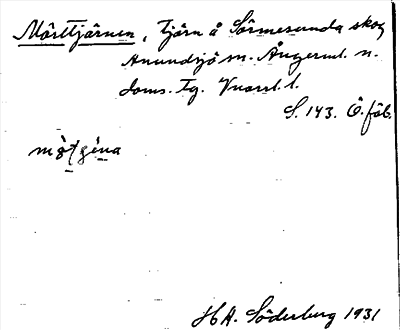 Mörttjärnen, Tjärn å Sörmesunda skog
Anundsjö sn. Ångerml. n.
doms. Tg. Vnorrl. l.
S. 143. Ö. fåb.
H A. Söderberg 1931